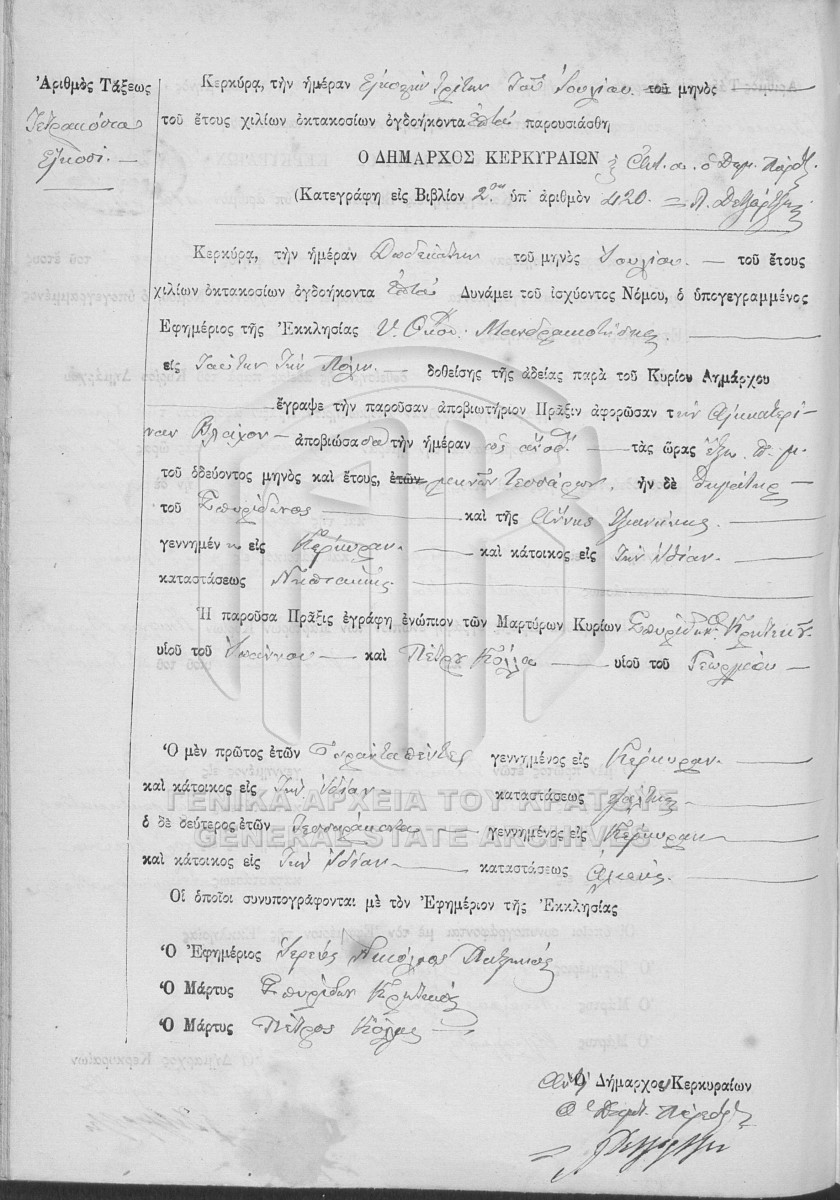 Ἀριθμὸς Τάξεως
Τετρακόσια
Εἴκοσι. —
Κερκύρᾳ, τὴν ἡμέραν Εἰκοστὴν Τρίτην Τοῦ Ἰουλίου τοῦ μηνὸς
τοῦ ἔτους χιλίων ὀκτακοσίων ὀγδοήκοντα ἑπτὰ παρουσιάσθη
Ο ΔΗΜΑΡΧΟΣ ΚΕΡΚΥΡΑΙΩΝ ὁ Δημ. Πάρεδ.
(Κατεγράφη εἰς Βιβλίον 2ον ὑπ' ἀριθμὸν 420.
Κερκύρᾳ, τὴν ἡμέραν Δωδεκάτην τοῦ μηνὸς Ἰουλίου. — τοῦ ἔτους
χιλίων ὀκτακοσίων ὀγδοήκοντα ἑπτὰ Δυνάμει τοῦ ἰσχύοντος Νόμου, ὁ ὑπογεγραμμένος
Ἐφημέριος τῆς Ἐκκλησίας Υ. Θκου. Μανδρακιωτίσσης
εἰς Ταύτην Τὴν Πόλιν. — δοθείσης τῆς ἀδείας παρὰ τοῦ Κυρίου Δημάρχου
ἔγραψε τὴν παροῦσαν ἀποβιωτήριον Πρᾶξιν ἀφορῶσαν τὴν Αἰκατερί-
ναν Βλάχου — ἀποβιώσασα τὴν ἡμέραν ὡς ἄνωθ. — τὰς ὥρας ἕξω π. μ.
τοῦ ὁδεύοντος μηνὸς καὶ ἔτους, ἐτῶν μηνῶν Τεσσάρων, ἦν δὲ θυγάτηρ
τοῦ Σπυρίδωνος — καὶ τῆς Ἀννης
γεννημένη εἰς Κέρκυραν. — καὶ κάτοικος εἰς Τὴν Ἰδίαν.
καταστάσεως Νηπιακῆς.
Ἡ παροῦσα Πρᾶξις ἐγράφη ἐνώπιον τῶν Μαρτύρων Κυρίων Σπυρίδων. Κρητικοῦ
υἱοῦ τοῦ Ἰωάννου — καὶ Πέτρου Κόλλα — υἱοῦ τοῦ Γεωργίου —
Ὁ μὲν πρῶτος ἐτῶν Σαρανταπέντε γεννημένος εἰς Κέρκυραν. —
καὶ κάτοικος εἰς Τὴν Ἰδίαν — καταστάσεως
ὁ δὲ δεύτερος ἐτῶν Τεσσαράκοντα — γεννημένος εἰς Κέρκυραν
καὶ κάτοικος εἰς Τὴν Ἰδίαν — καταστάσεως ἁλιεύς.
Οἱ ὁποῖοι συνυπογράφονται μὲ τὸν Ἐφημέριον τῆς Ἐκκλησίας
Ὁ Ἐφημέριος Ἱερεὺς Νικόλαος
Ὁ Μάρτυς Σπυρίδων Κρητικός
Ὁ Μάρτυς Πέτρος Κόλλας
Ὁ Δήμαρχος Κερκυραίων
Ὁ Δημ. Πάρεδρ.
ΓΕΝΙΚΑ ΑΡΧΕΙΑ ΤΟΥ ΚΡΑΤΟΥΣ
GENERAL STATE ARCHIVES